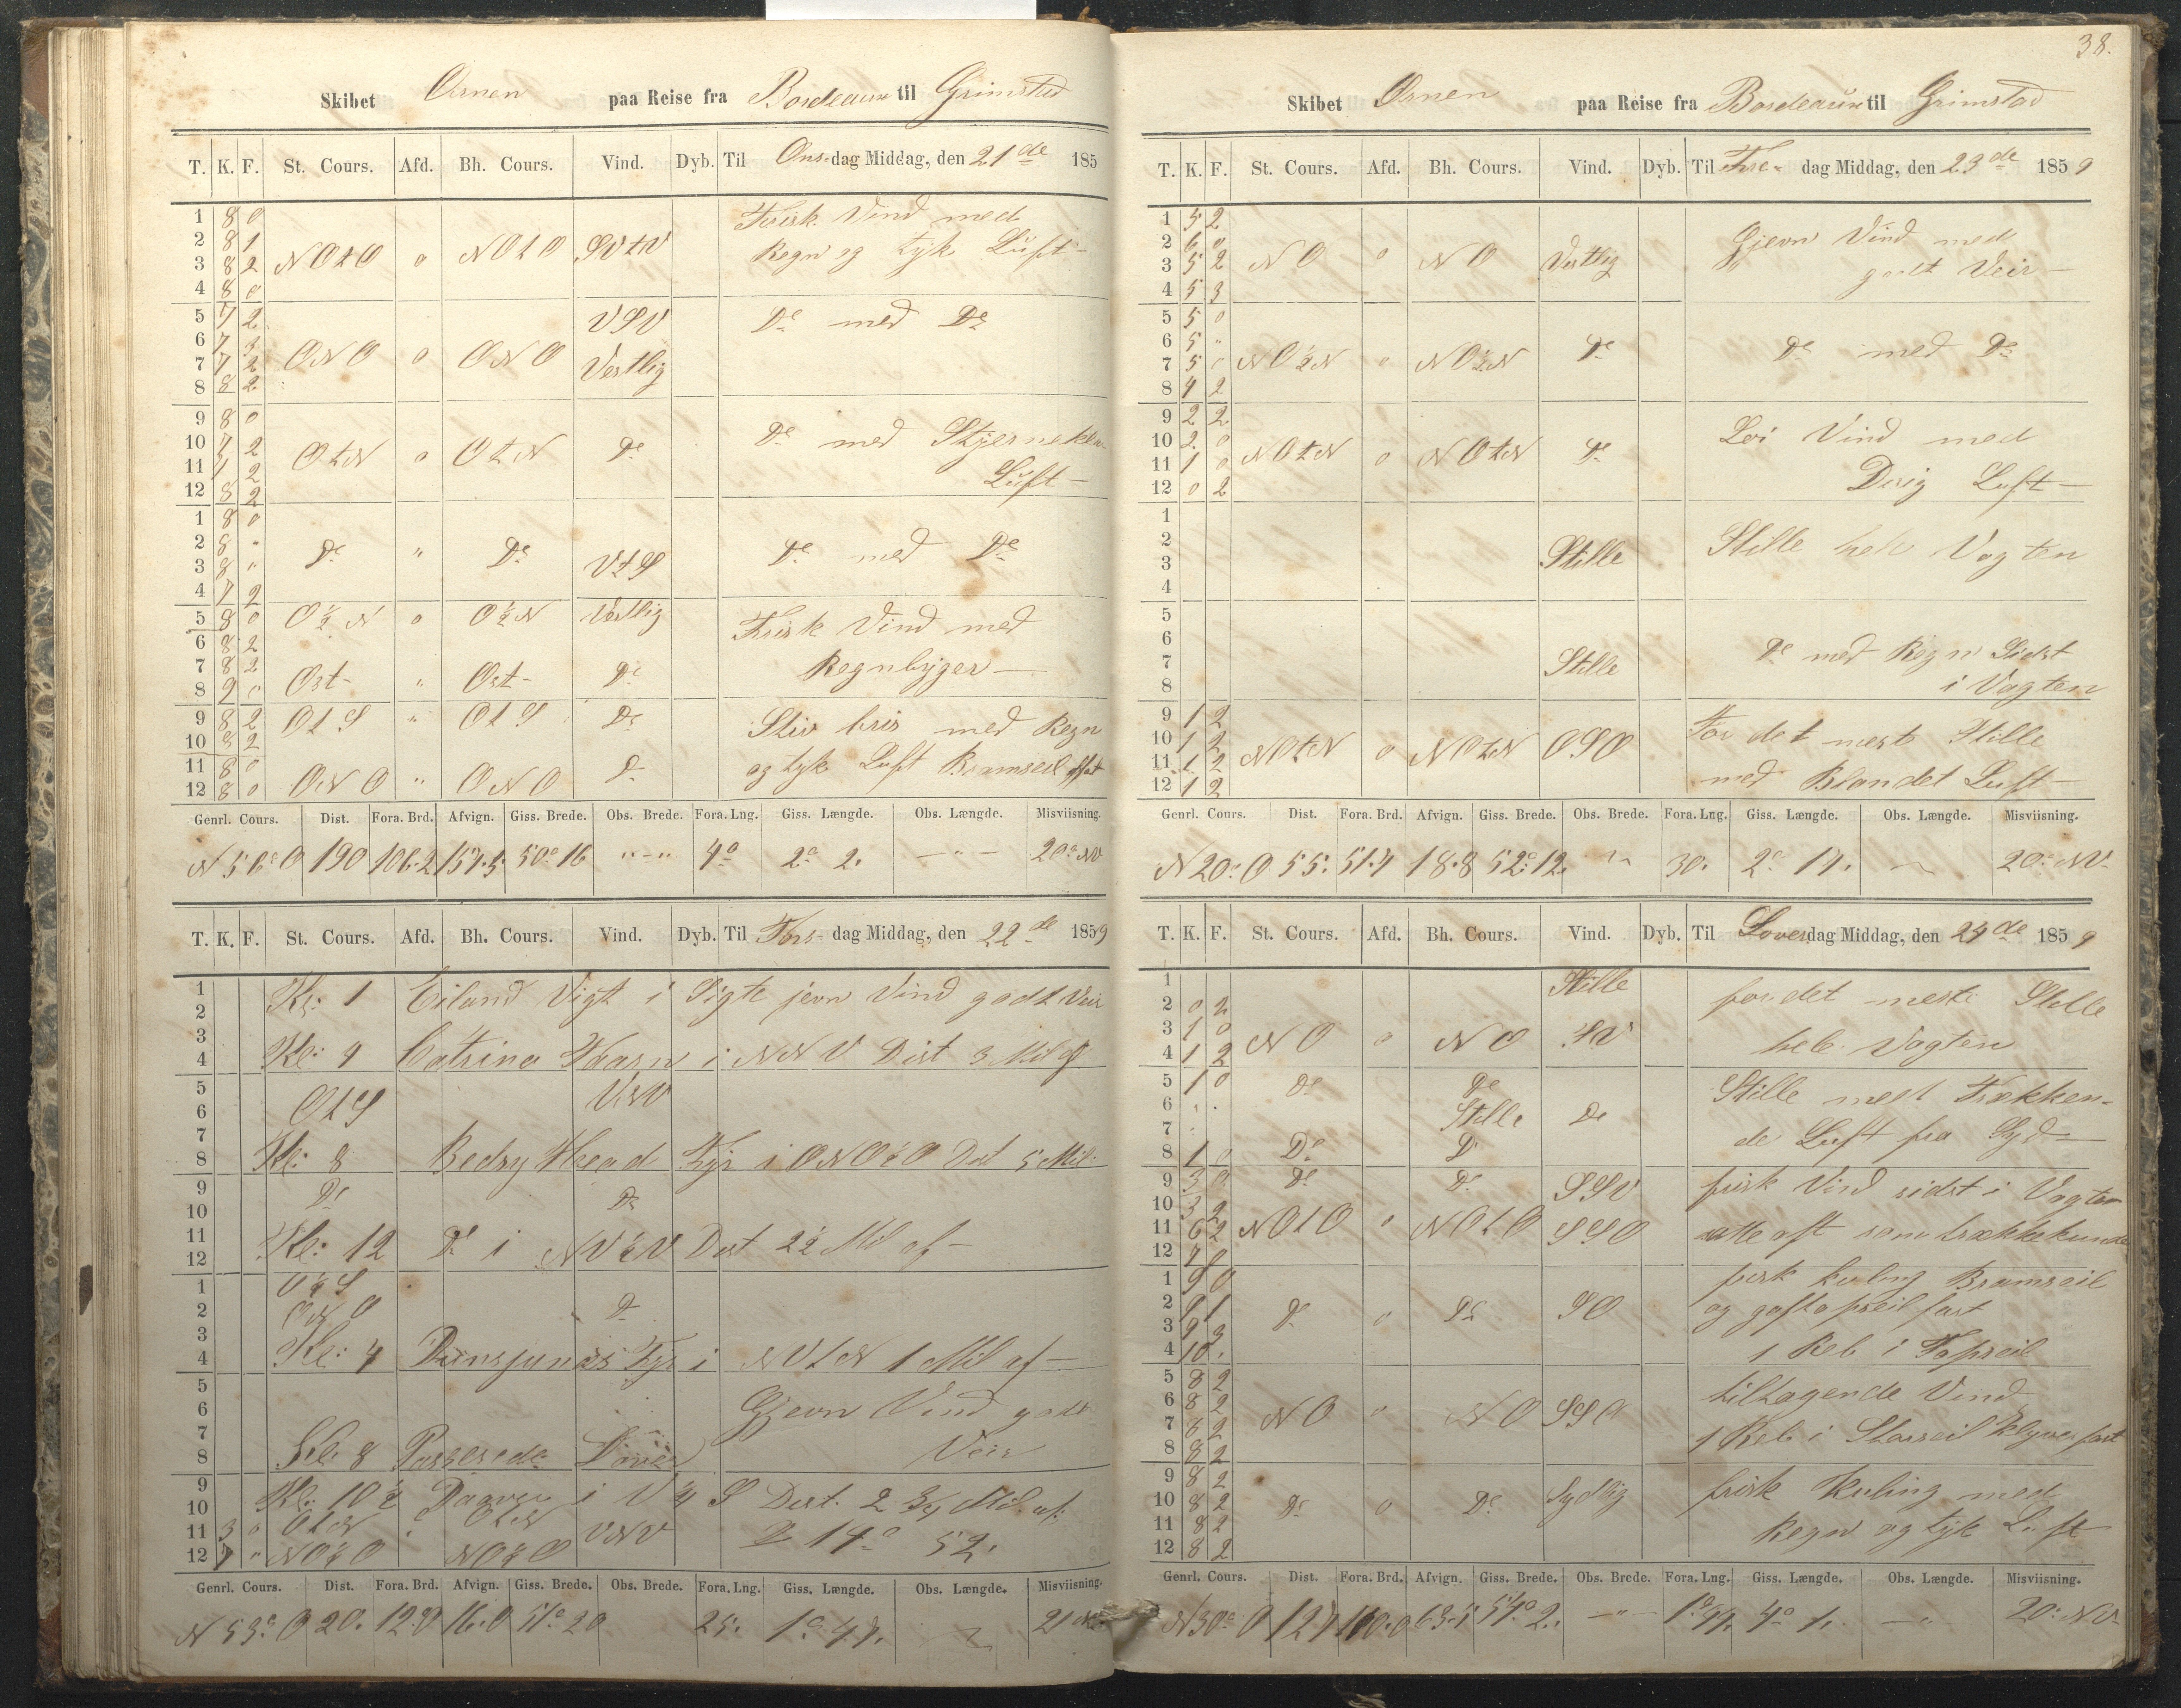 Skibet Ørnen paa Reise fra Bordeaux til Grimstad
T. K. F. St. Cours. Afd. Bh. Cours. Vind. Dyb. Til Ons-dag Middag, den 21de 185
1 8 0 Frisk Vind med
2 8 1 NOtO 0 NOtO SVtV Regn og tyk Luft
3 8 2
4 8 0
5 7 2 VSV Do med Do
6 7 3
7 7 2 ONO 0 ONO Vestlig
8 8 2
9 8 0
10 7 2 OtN 0 OtN Do Do med Stjerneklar
11 7 2 Luft
12 8 2
1 8 0
2 8 " Do " Do Do med Do
3 8 " VtS
4 7 2
5 8 0 O½N 0 O½N Vestlig Frisk Vind med
6 8 2
7 8 2 Regnbyger
8 9 0 Ost " Ost Do
9 8 2 OtS " OtS Do Stiv bris med Regn
10 8 2
11 8 0 og tyk Luft Bramseil fast
12 8 0 ONO " ONO Do
Genrl. Cours. Dist. Fora. Brd. Afvign. Giss. Brede. Obs. Brede. Fora. Lng. Giss. Længde. Obs. Længde. Misviisning.
N 56° O 190 106.2 157.5 50° 16 "-" 4° 2° 2. -"- 20° NV
T. K. F. St. Cours. Afd. Bh. Cours. Vind. Dyb. Til Tors-dag Middag, den 22de 1859
1 Kl: 1 Eiland Vigt i Sigte jevn Vind godt Veir
2
3
4 Kl: 4 i NNV Dist 3 Mil af
5 OtS VNV
6
7
8 Kl: 8 Head Fyr i Dist 5 Mil
9 Do Do
10
11
12 Kl: 12 Do i NV½V Dist 2½ Mil af
1 O½S
2 ONO Do
3
4 Kl: 4 Fyr i NVtN 1 Mil af
5
6 Gjevn Vind godt
7
8 Kl: 8 Passerede Dover Veir
9 Kl: 10½ i V¼S Dist. 2¾ Mil af
10
11 3 0 OtN OtN VNV 14° 52.
12 7 " NO½O NO½O
Genrl. Cours. Dist. Fora. Brd. Afvign. Giss. Brede. Obs. Brede. Fora. Lng. Giss. Længde. Obs. Længde. Misviisning.
N 53° O 20. 12.0 16.0 51° 20 25. 1° 47. 21
38.
Skibet Ørnen paa Reise fra Bordeaux til Grimstad
T. K. F. St. Cours. Afd. Bh. Cours. Vind. Dyb. Til Fre-dag Middag, den 23de 1859
1 5 2 Gjevn Vind med
2 6 0 NO 0 NO Vestlig
3 5 2 godt Veir
4 5 3
5 5 0
6 5 " NO½N " NO½N Do Do med Do
7 5 0
8 4 2
9 2 2 Løi Vind med
10 2 0 NOtN 0 NOtN Do
11 1 0 Luft
12 0 2
1
2 Stille Stille hele Vagten
3
4
5
6 Do med Regn Sidst
7 Stille
8 i Vagten
9 1 2 For det meste Stille
10 1 2 NOtN 0 NOtN OSO
11 1 2
12 1 2 med Blandet Luft
Genrl. Cours. Dist. Fora. Brd. Afvign. Giss. Brede. Obs. Brede. Fora. Lng. Giss. Længde. Obs. Længde. Misviisning.
N 20° O 55. 51.7 18.8 52° 12. 30. 2° 17. 20° NV
T. K. F. St. Cours. Afd. Bh. Cours. Vind. Dyb. Til Løverdag Middag, den 24de 1859
1 Stille for det meste Stille
2 0 2
3 1 0 NO 0 NO SV
4 1 2 hele Vagten
5 1 0 Do Do Stille mest Trækken-
6 Stille Do
7 de Luft fra Syd
8 1 0 Do Do
9 3 0 Do Do SSV frisk Vind sidst i Vagten
10 3 2
11 6 2 NOtO 0 NOtO SSO
12 7 0
1 9 0 frisk kuling Bramseil
2 9 1 Do 0 Do SO og gaftopseil fast
3 9 3
4 10 . 1 Reb i Topseil
5 8 2 tiltagende Vind
6 8 2 NO " NO SSO
7 8 2 1 Reb i Storseil Klyver fast
8 8 2
9 8 2 frisk Kuling med
10 8 2 Do 0 Do Sydlig
11 8 2 Regn og tyk Luft
12 8 2
Genrl. Cours. Dist. Fora. Brd. Afvign. Giss. Brede. Obs. Brede. Fora. Lng. Giss. Længde. Obs. Længde. Misviisning.
N 30° O 127 110.0 63.5 54° 2. -"- 1° 47. 4° 1. -"- 20° NV